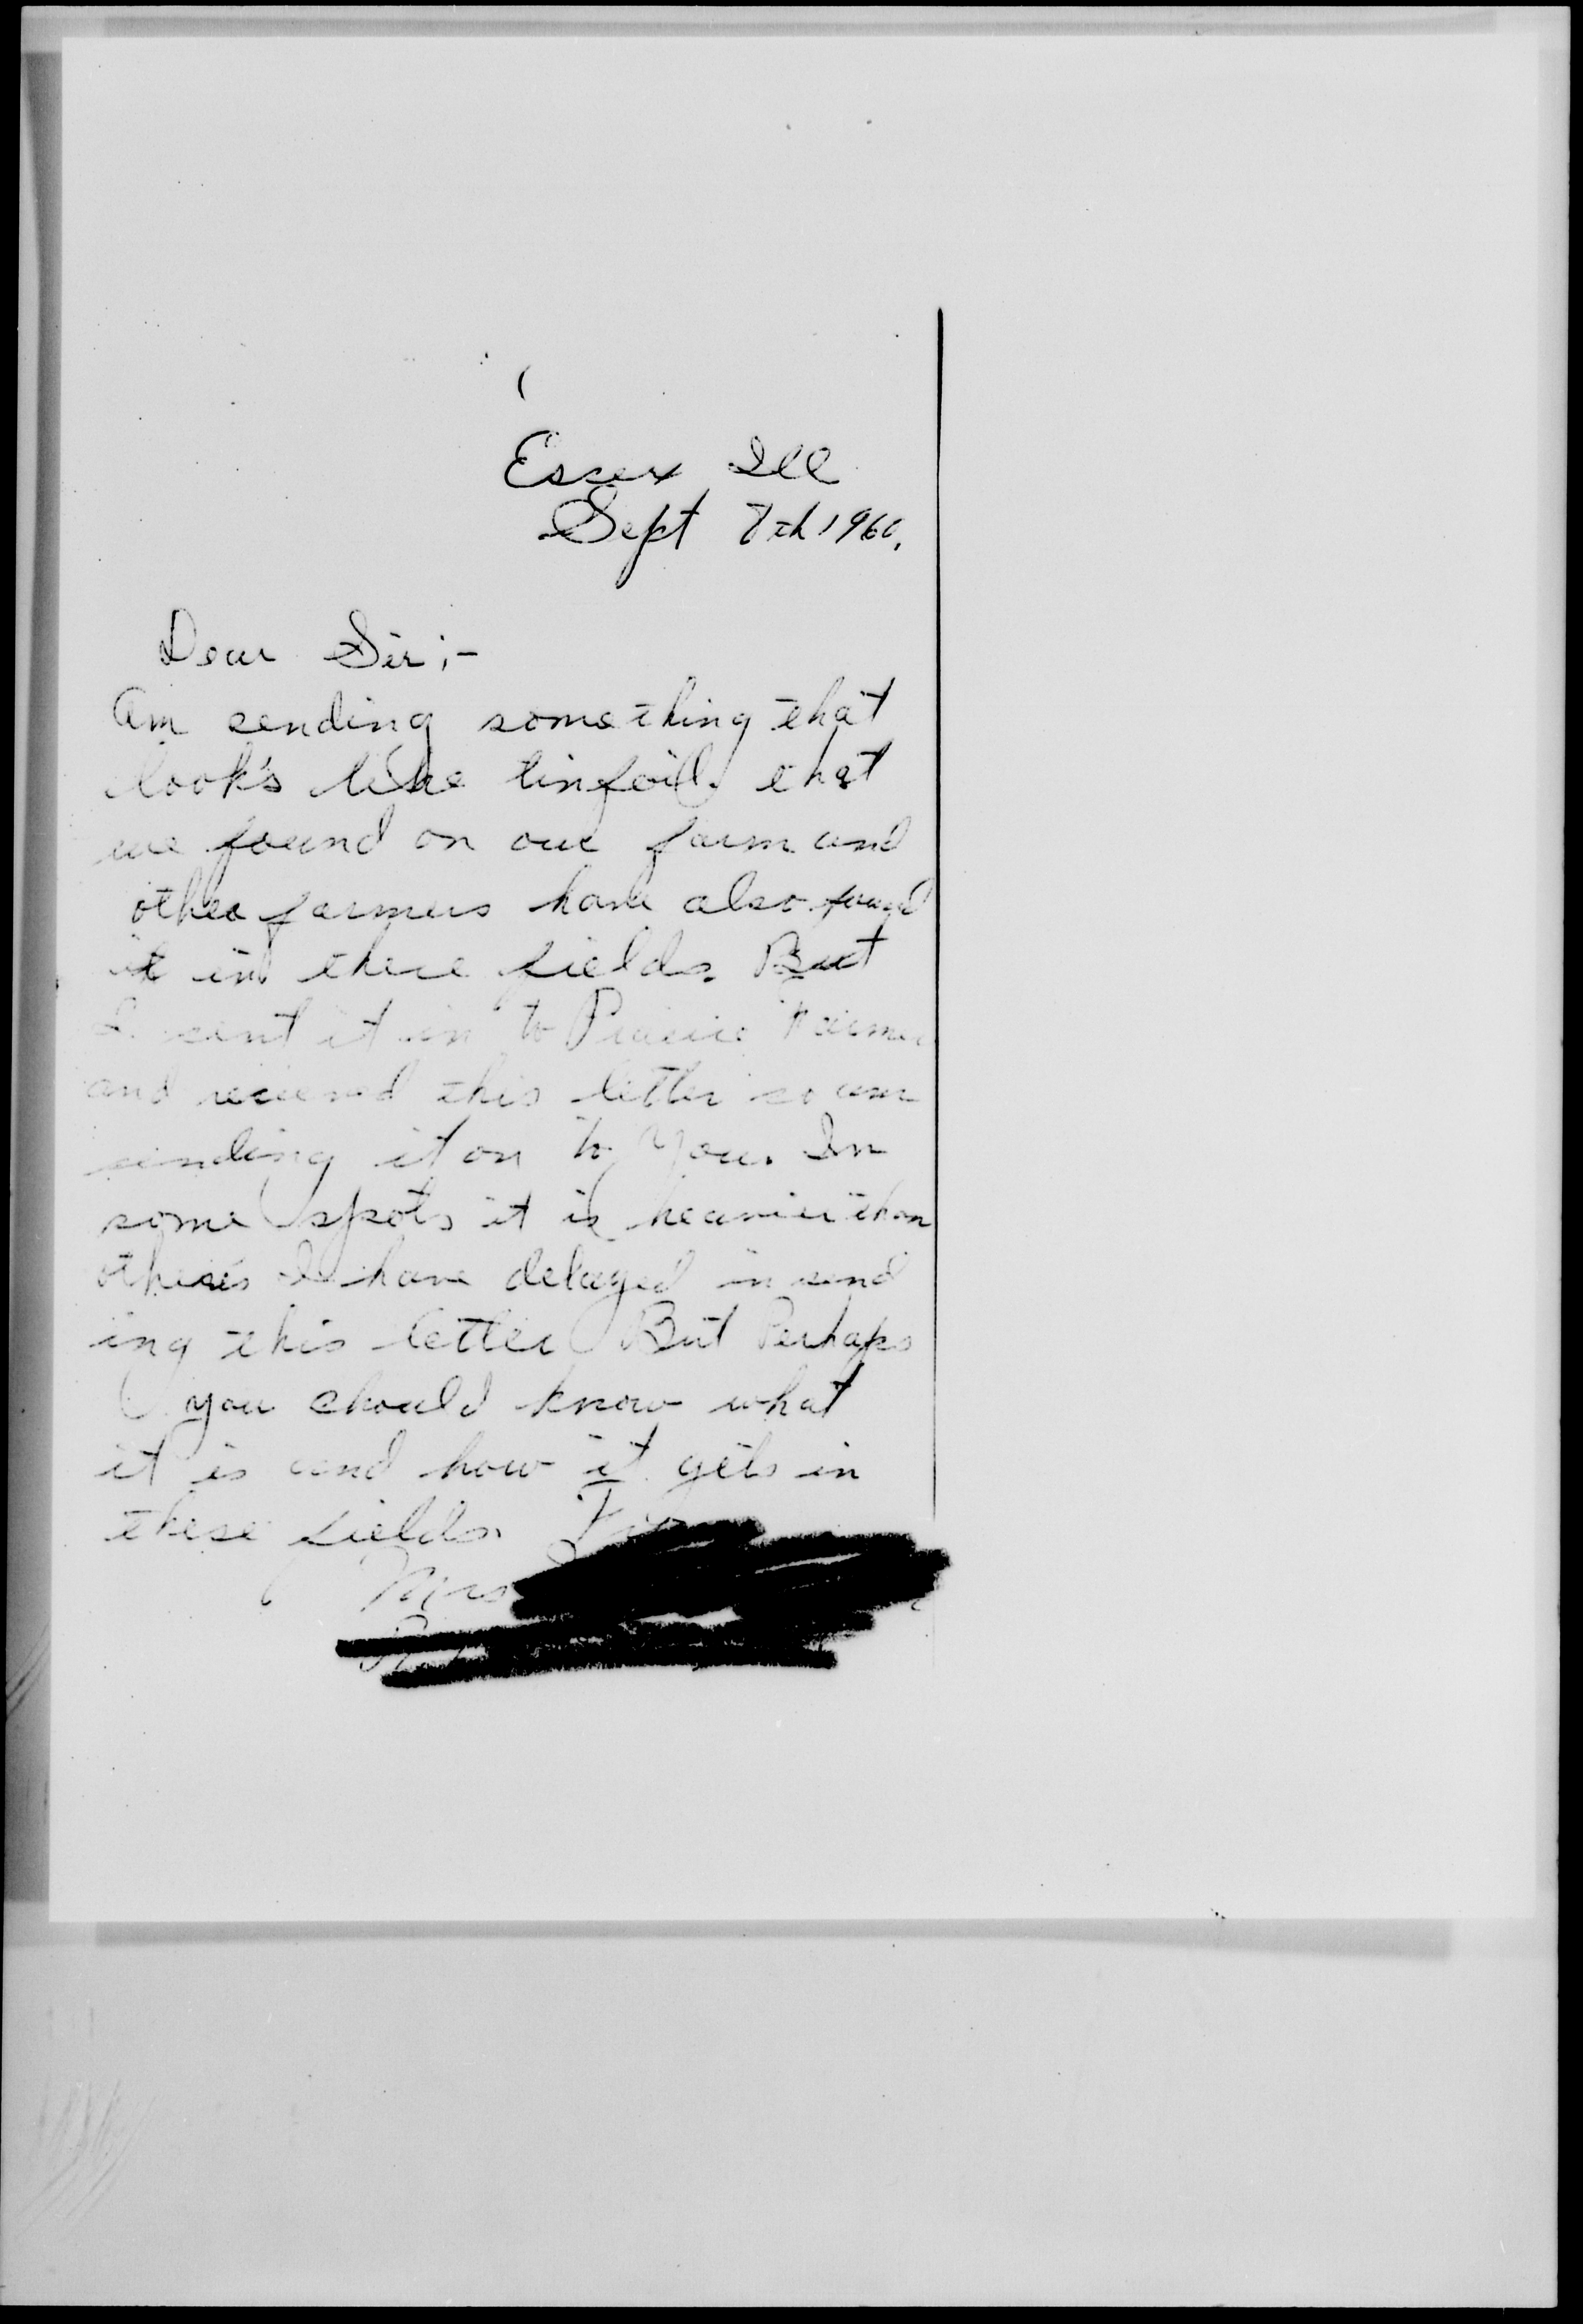 Essex Ill
Sept 7th 1960.
Dear Sir;-
Am sending something that
look's like tinfoil. that
we found on our farm and
other farmers have also found
it in there fields. But
I sent it in to Prairie Farmer
and recieved this letter so am
sending it on to you. In
some spots it is heavier than
others I have delayed in send
ing this letter But Perhaps
you should know what
it is and how it gets in
these fields.
Mrs